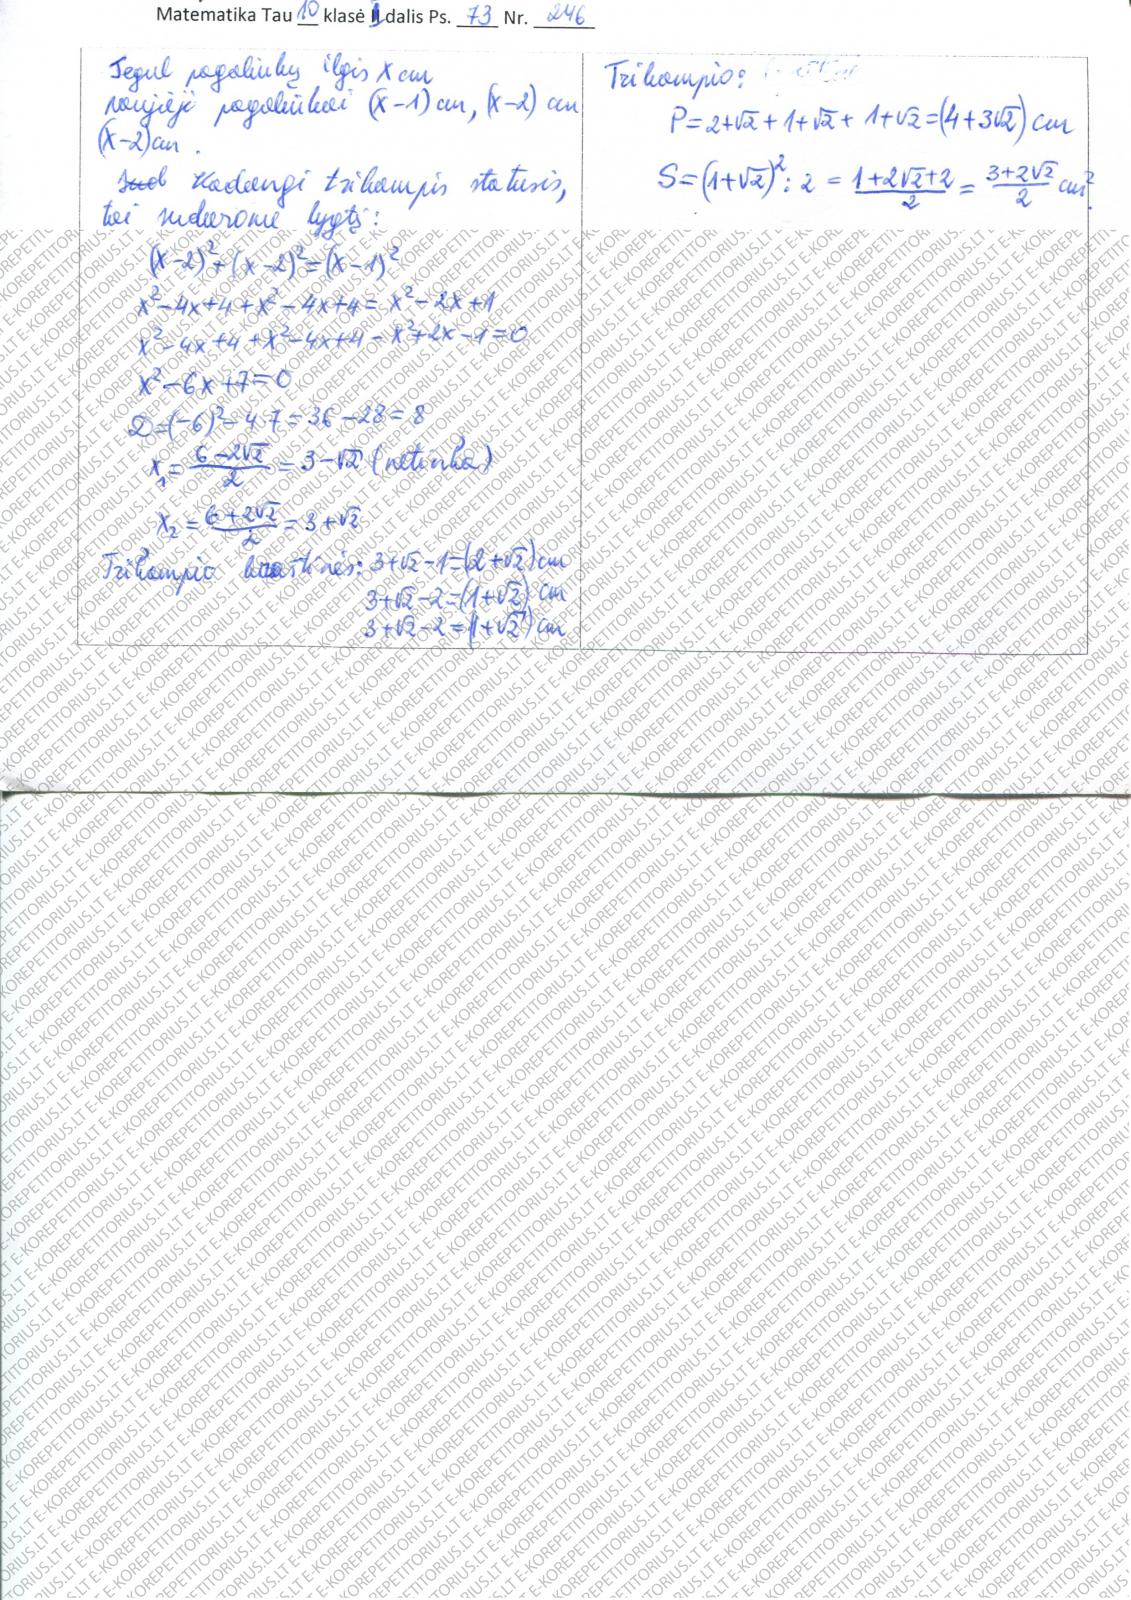 Matematika Tau 10 klasė II dalis Ps. 73 Nr. 246
Tegul pagaliukų ilgis x cm
naujieji pagaliukai (x-1) cm, (x-2) cm
(x-2) cm.
Kadangi trikampis statusis,
tai sudarome lygtį:
(x-2)²+(x-2)²=(x-1)²
x²-4x+4+x²-4x+4=x²-2x+1
x²-4x+4+x²-4x+4-x²+2x-1=0
x²-6x+7=0
D=(-6)²-4·7=36-28=8
x₁=(6-2√2)/2=3-√2 (netinka)
x₂=(6+2√2)/2=3+√2
Trikampio kraštinės: 3+√2-1=(2+√2) cm
3+√2-2=(1+√2) cm
3+√2-2=(1+√2) cm
Trikampio:
P=2+√2+1+√2+1+√2=(4+3√2) cm
S=(1+√2)²:2=(1+2√2+2)/2=(3+2√2)/2 cm².
E-KOREPETITORIUS.LT